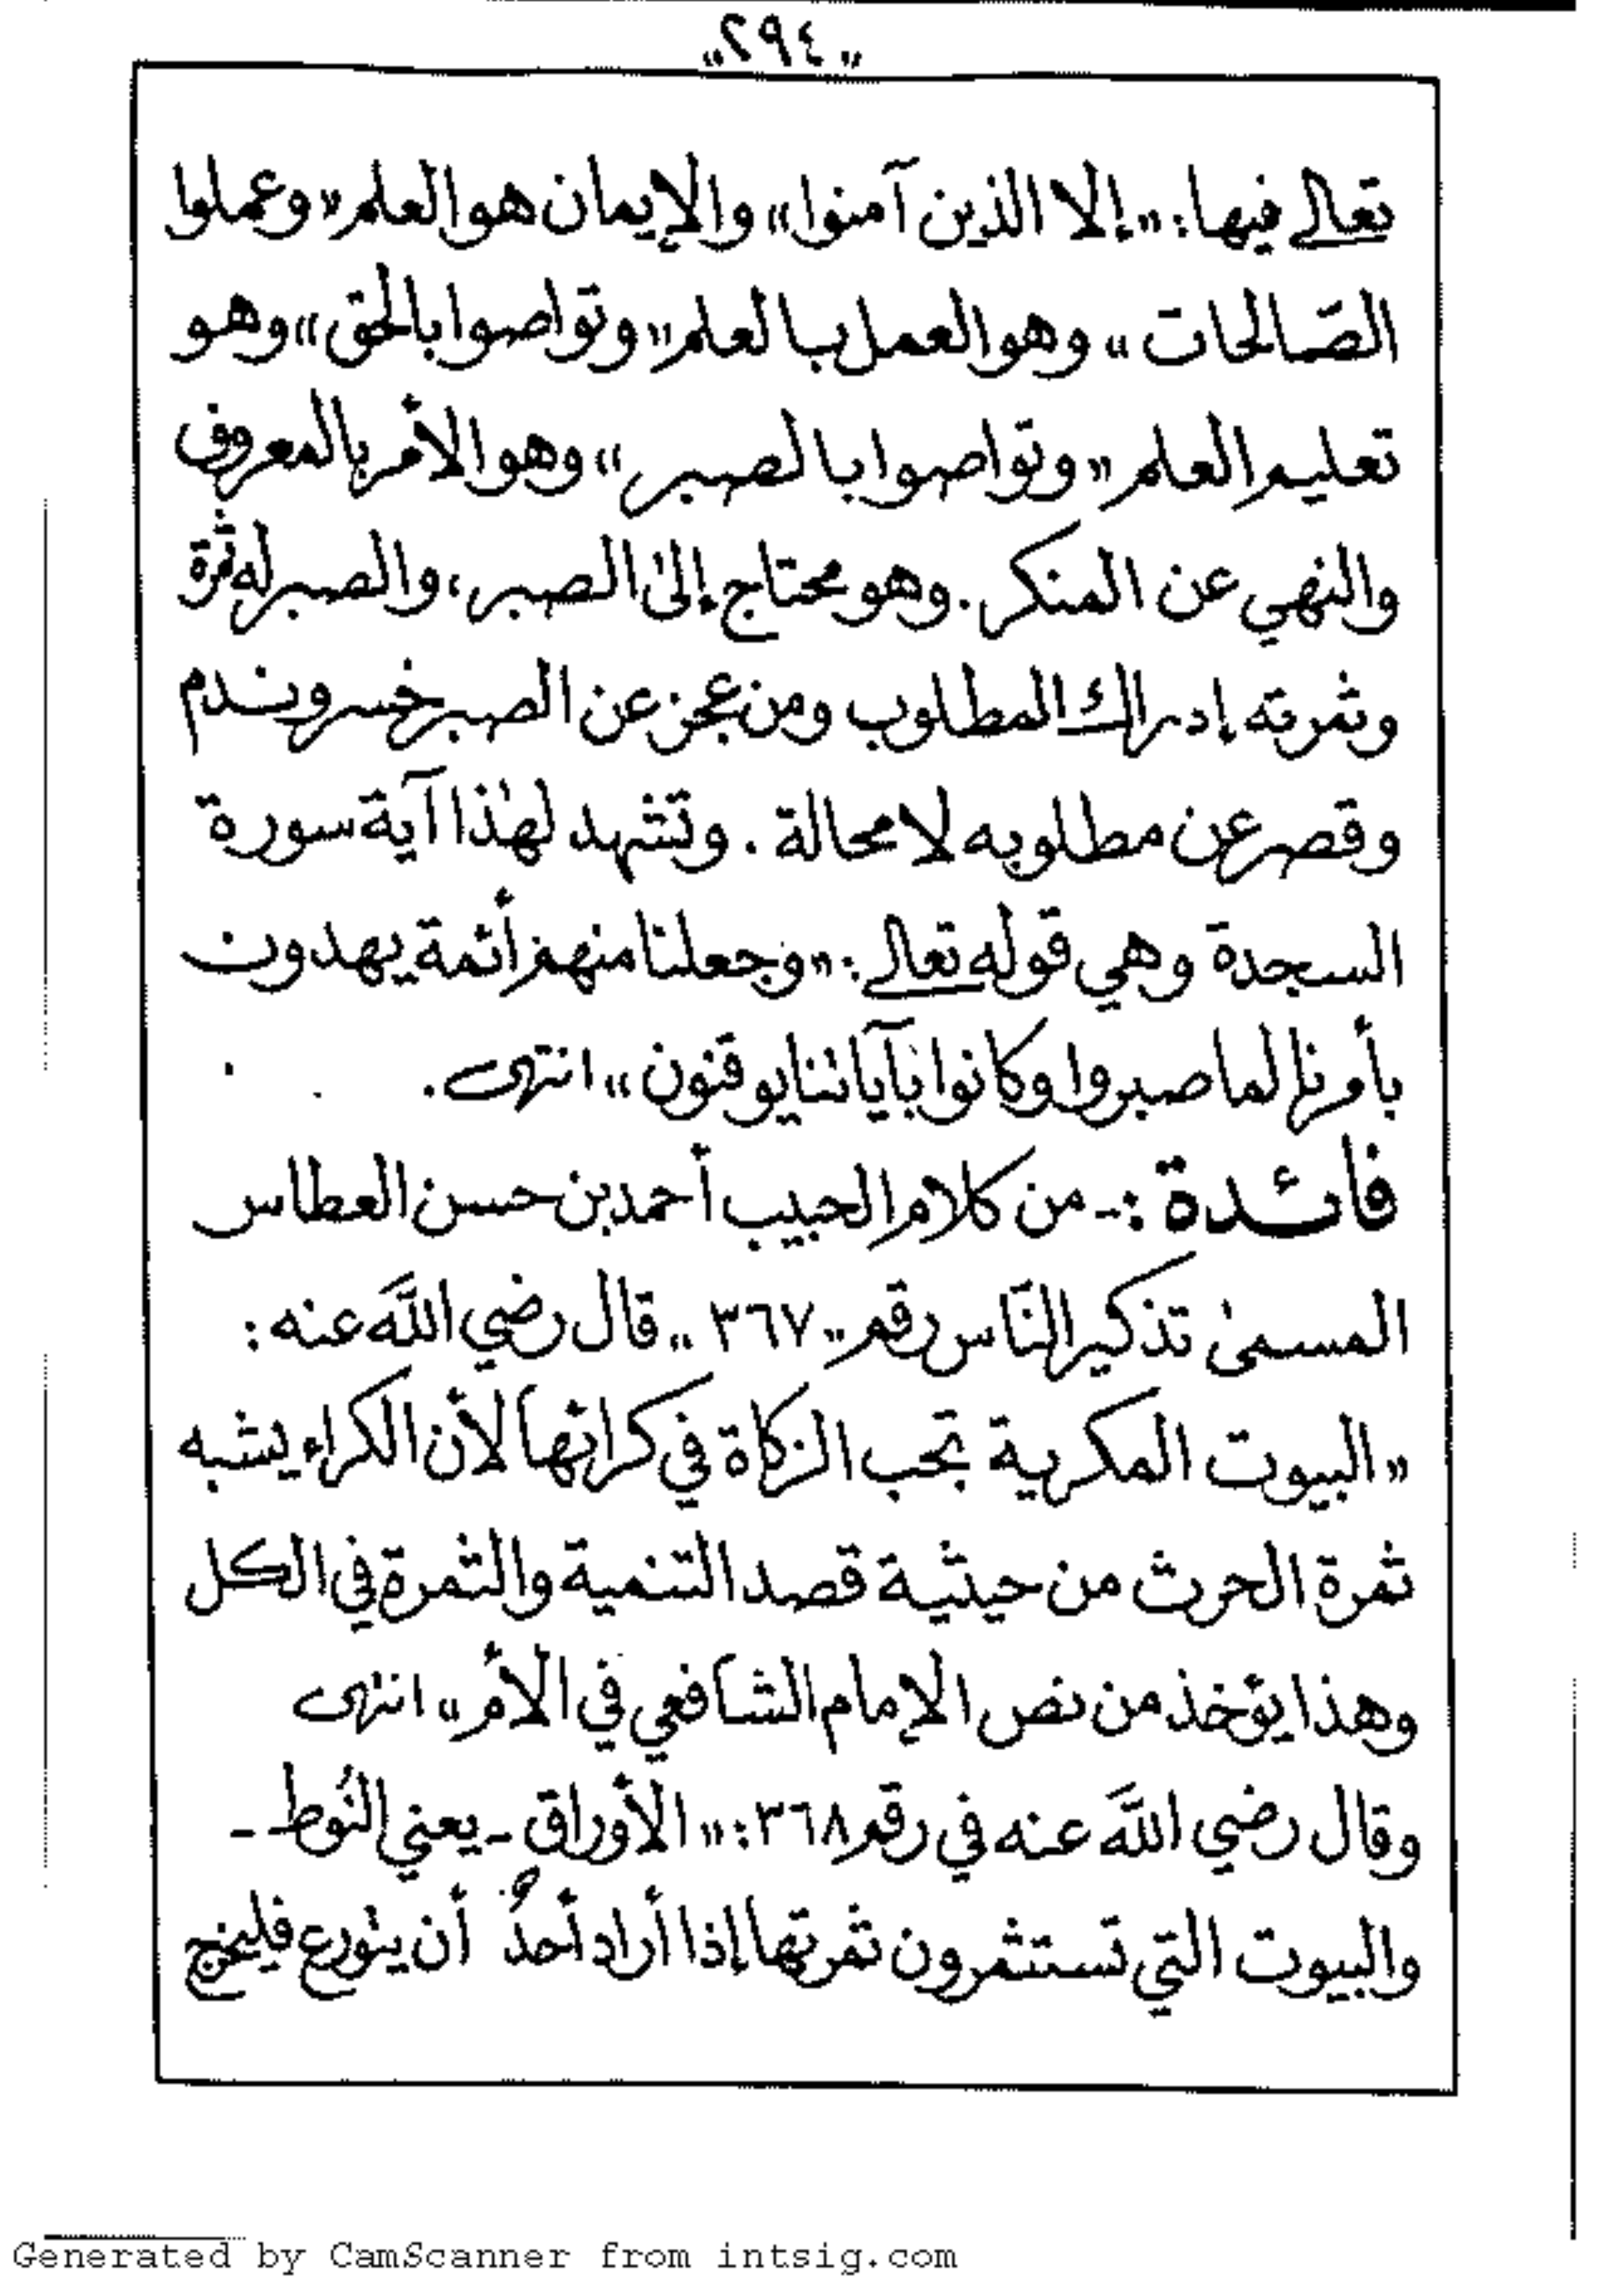 „٢٩٤„
تعالى فيها: «إلا الذين آمنوا» والإيمان هو العلم «وعملوا
الصّالحات» وهو العمل بالعلم «وتواصوا بالحق» وهو
تعليم العلم «وتواصوا بالصبر» وهو الأمر بالمعروف
والنهي عن المنكر. وهو محتاج إلىٰ الصبر، والصبر له ثمرة
وثمرته إدراك المطلوب ومن عجز عن الصبر خسر وندم
وقصر عن مطلوبه لا محالة. وتشهد لهٰذا آية سورة
السجدة وهي قوله تعالى: «وجعلنا منهم أئمة يهدون
بأمرنا لما صبروا وكانوا بآياتنا يوقنون» انتهى.
فائدة :- من كلام الحبيب أحمد بن حسن العطاس
المسمىٰ تذكير النَّاس رقم „٣٦٧„ قال رضي اللَّه عنه:
«البيوت المكرية تجب الزكاة في كرائها لأن الكراء يشبه
ثمرة الحرث من حيثية قصد التنمية والثمرة في الكل
وهذا يؤخذ من نص الإمام الشافعي في الأم» انتهى
وقال رضي اللَّه عنه في رقم ٣٦٨: «الأوراق - يعني النُوط -
والبيوت التي تستثمرون ثمرتها إذا أراد أحدٌ أن يتورع فليخرج
Generated by CamScanner from intsig.com